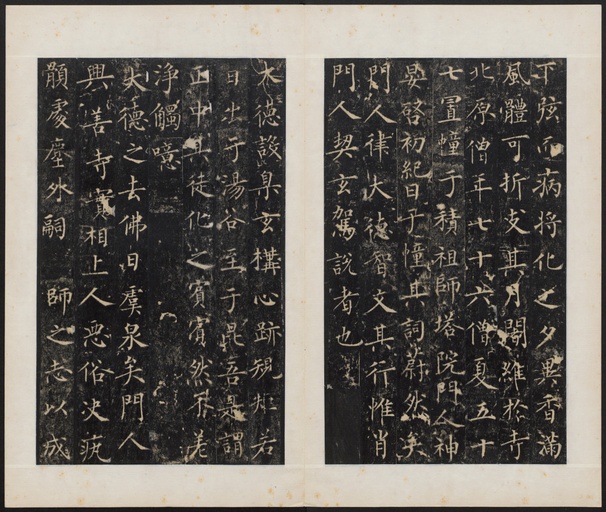 下弦而病將化之夕異香滿
風體可折支其月闍維於寺
北原僧年七十六僧夏五十
七置幢于積祖師塔院門人神
晏啓初紀日于幢且詞蔚然矣
門人律大德智文其行惟肖
門人契玄駕說者也
大德設臬玄構心跡規矩若
日出于湯谷至于昆吾是謂
正中其徒化之賓賓然不差
淨觸噫
大德之去佛日虞泉矣門人
興善寺實相上人悪俗決疣
顥處塵外嗣 師之志以成